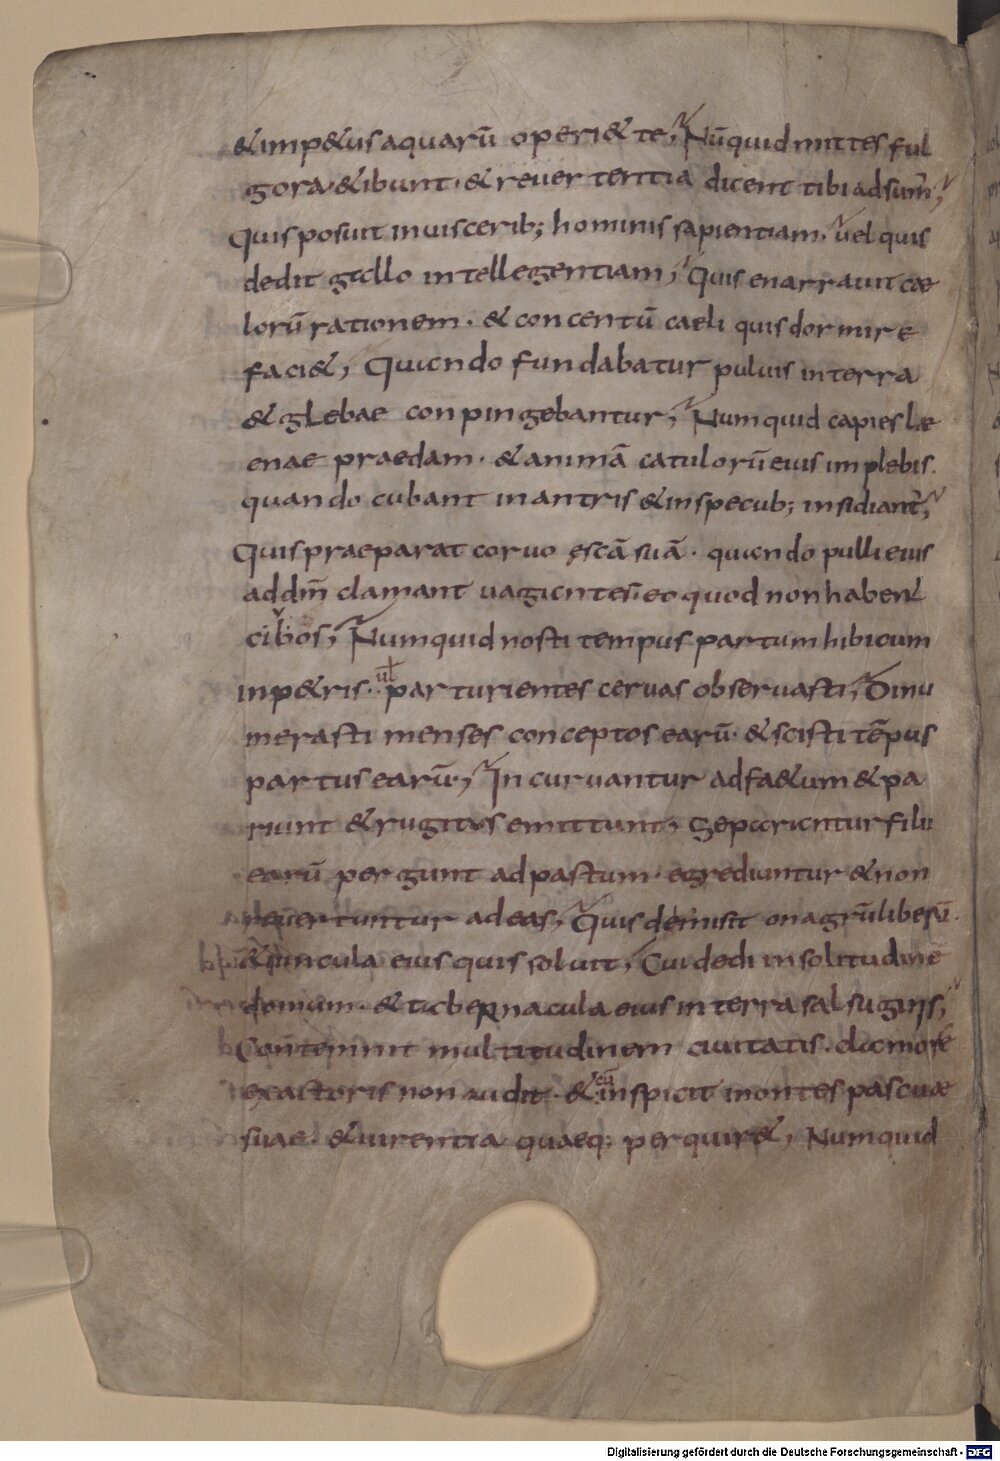 &imp&usaquarū operi&te; Nūquid mittes ful
gora·&ibunt·&revertentia dicent tibi adsum̄;
Quis posuit inviscerib; hominis sapientiam· vel quis
dedit gallo intellegentiam; Quis enarravit cae
lorū rationem· & concentū caeli quis dormire
faci&; Quando fundabatur pulvis interra
& glebae conpingebantur; Numquid capies leae
enae praedam· & animā catulorū eius implebis·
quando cubant inantris & inspecub; insidiant̄;
Quis praeparat corvo ęscā suā· quando pulli eius
addm̄ clamant vagantes· eo quod non habent
cibos; Numquid nosti tempus partum hibicum
inp&ris· vł parturientes cervas observasti; Dinu
merasti menses conceptos earū· & scisti tēpus
partus earū; Incurvantur adfa&um & pa
riunt & rugitus emittunt; Separantur filii
earū pergunt ad pastum· egrediuntur & non
revertuntur ad eas; Quis demisit onagrū liberū·
& vincula eius quis soluit; Cui dedi in solitudinē
domum· & tabernacula eius in terra salsuginis;
Contemnit multitudinem civitatis· clamorē
exactoris non audit· & inspicit montes pascuae
eū
suae· & virentia quaeq; perquir&; Numquid
Digitalisierung gefördert durch die Deutsche Forschungsgemeinschaft - DFG